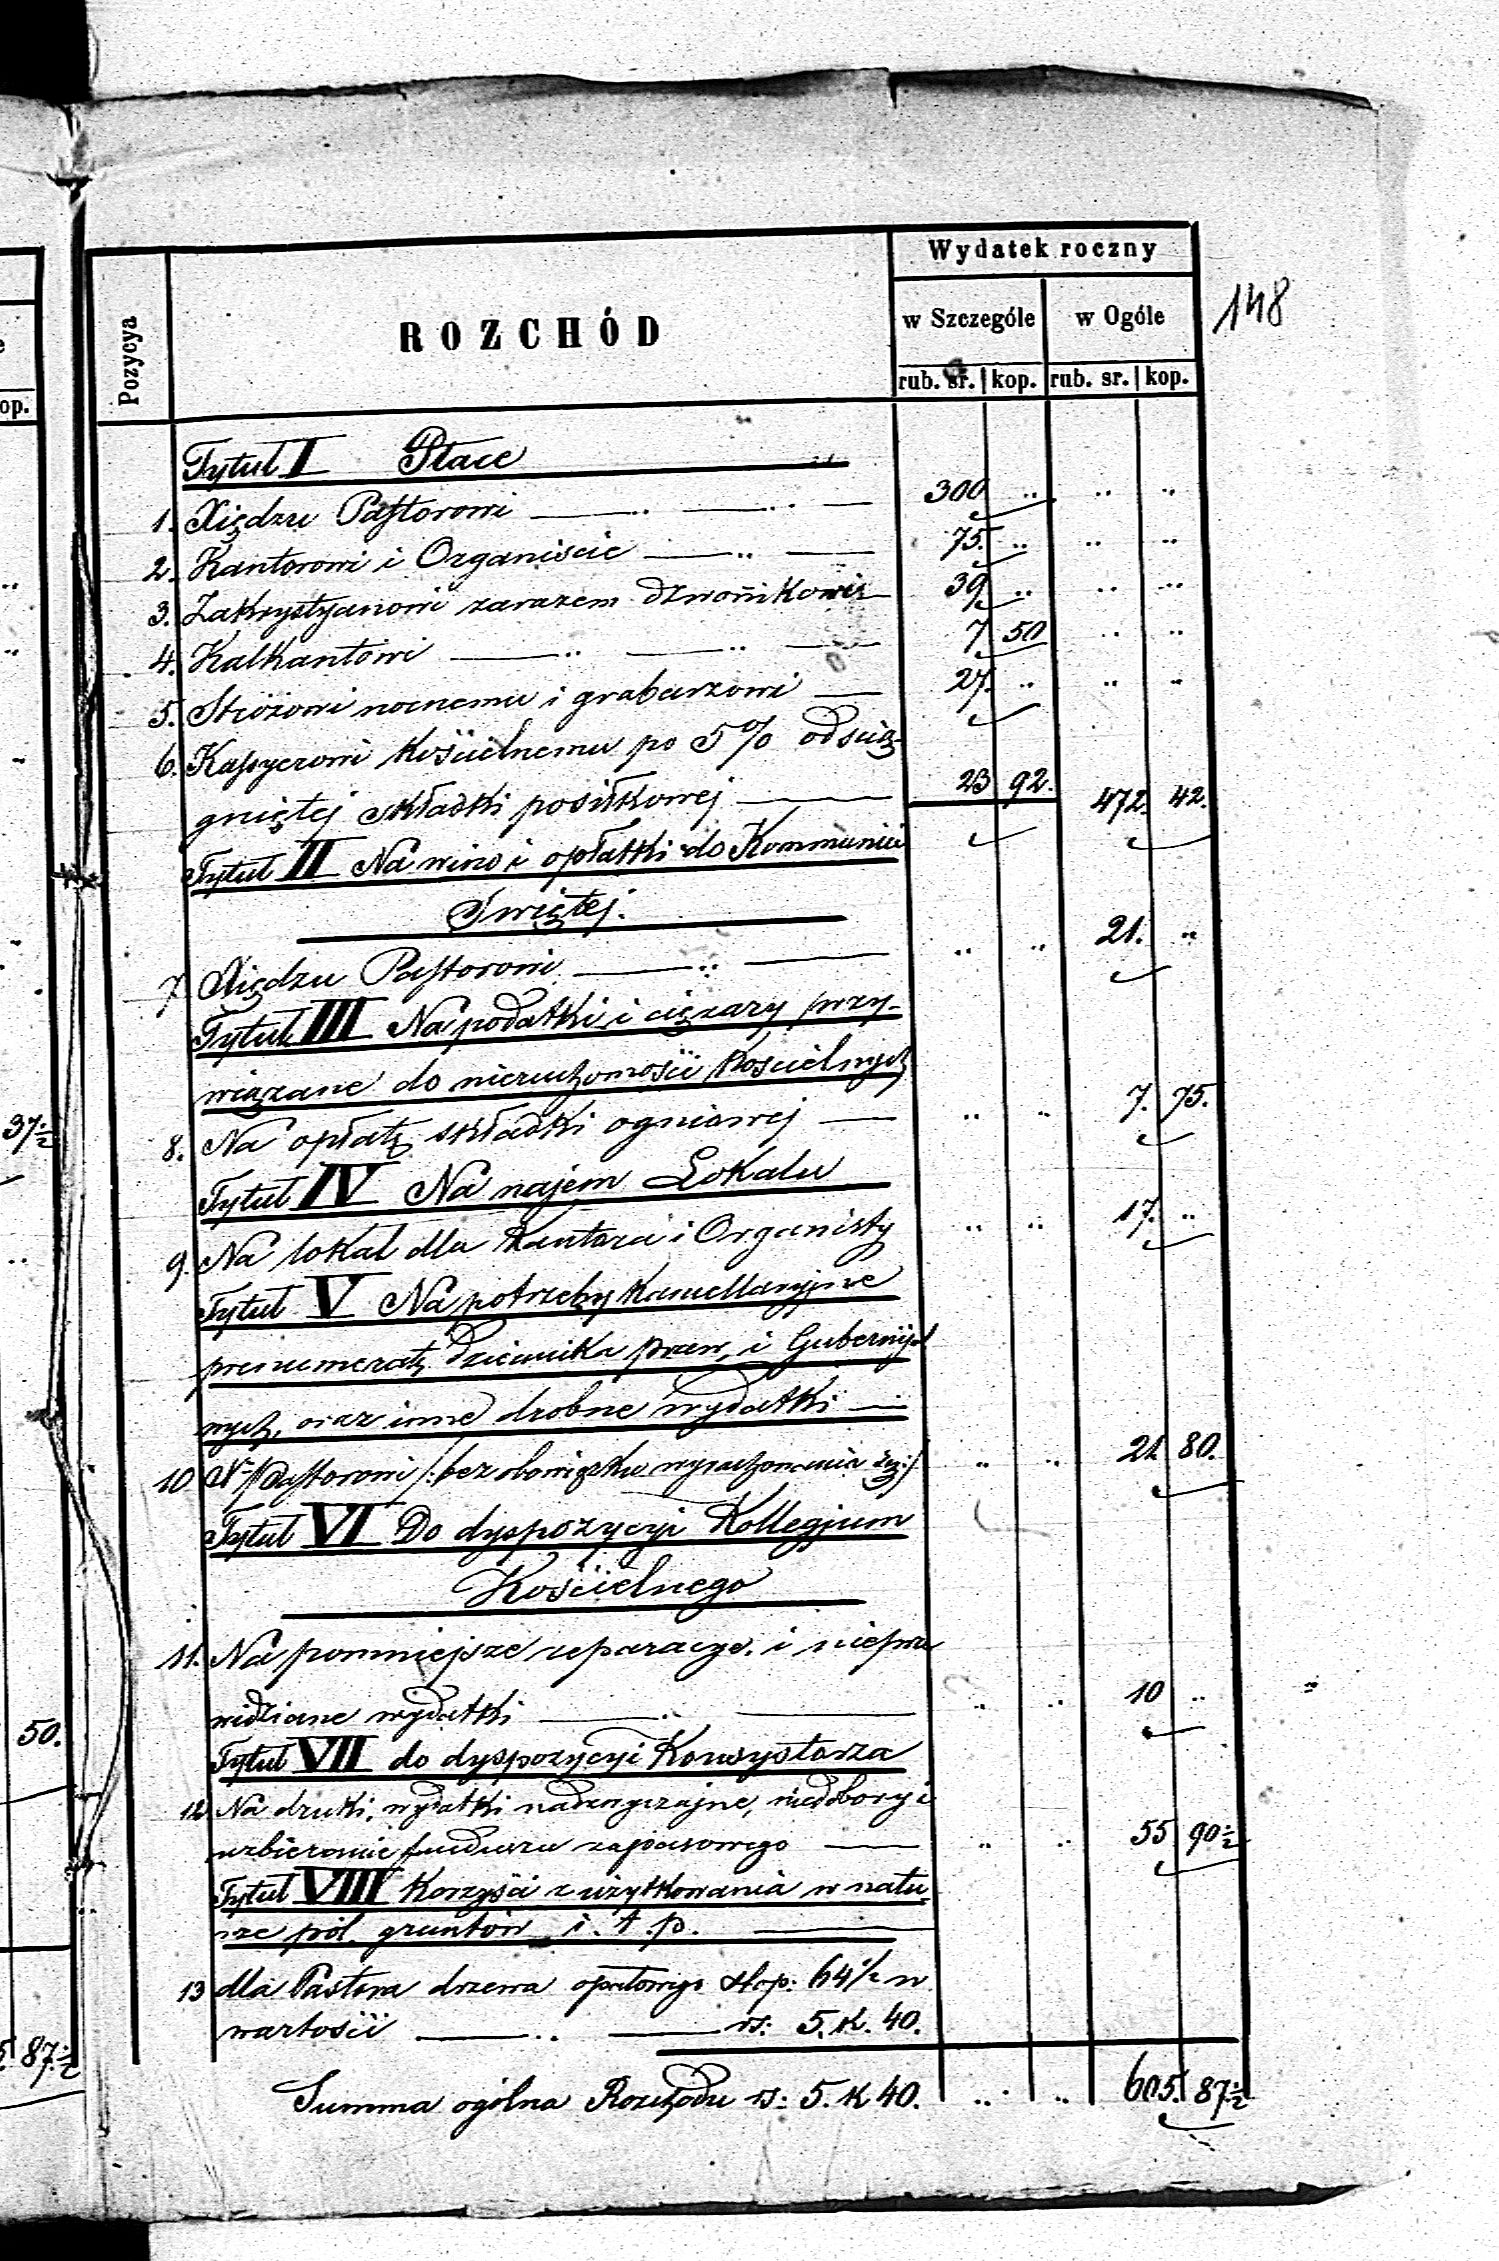 Wydatek roczny
Pozycya
ROZCHÓD
w Szczególe w Ogóle
148
rub. sr. kop. rub. sr. kop.
op.
Tytuł I Płace
1. Xiędzu Pastorowi 300 " " "
2. Kantorowi i Organiście 75. " " "
3. Zakrystyanowi zarazem dzwonikowi 39 " " "
4. Kalkantowi 7 50 " "
5. Stróżowi nocnemu i grabarzowi 27. " " "
6. Kassyerowi kościelnemu po 5% od ścią-
gniętej składki posiłkowej 23 92. 472. 42.
Tytuł II Na wino i opłatki do Kommunii
Świętej.
7 Xiędzu Pastorowi " " 21. "
Tytuł III Na podatki i ciężary przy-
wiązane do nieruchomości kościelnych
8. Na opłatę składki ogniowej " " 7. 75.
37 1/2
Tytuł IV Na najem Lokalu
9. Na lokal dla Kantora i Organisty " " 17. "
Tytuł V Na potrzeby kancellaryjne
prenumeratę dziennika praw, i Gubernijal
nych, oraz inne drobne wydatki
10 X Pastorowi /: bez obowiązku wyrachowania się :/ " " 21. 80.
Tytuł VI Do dyspozycyi Kollegjum
Kościelnego
11. Na pomniejsze reparacye i nieprze
widziane wydatki " " 10 "
50.
Tytuł VII do dyspozycyi Konsystorza
12 Na druki, wydatki nadzwyczajne, niedobory i
uzbieranie funduszu zapasowego " " 55 90 1/2
Tytuł VIII Korzyści z użytkowania w natu-
rze pól, gruntów i. t. p.
13 dla Pastora drzewa opałowego stop: 64 1/2 w
wartości rs: 5. k. 40.
5. 87 1/2
Summa ogólna Rozchodu rs: 5. k 40. " " 605. 87 1/2